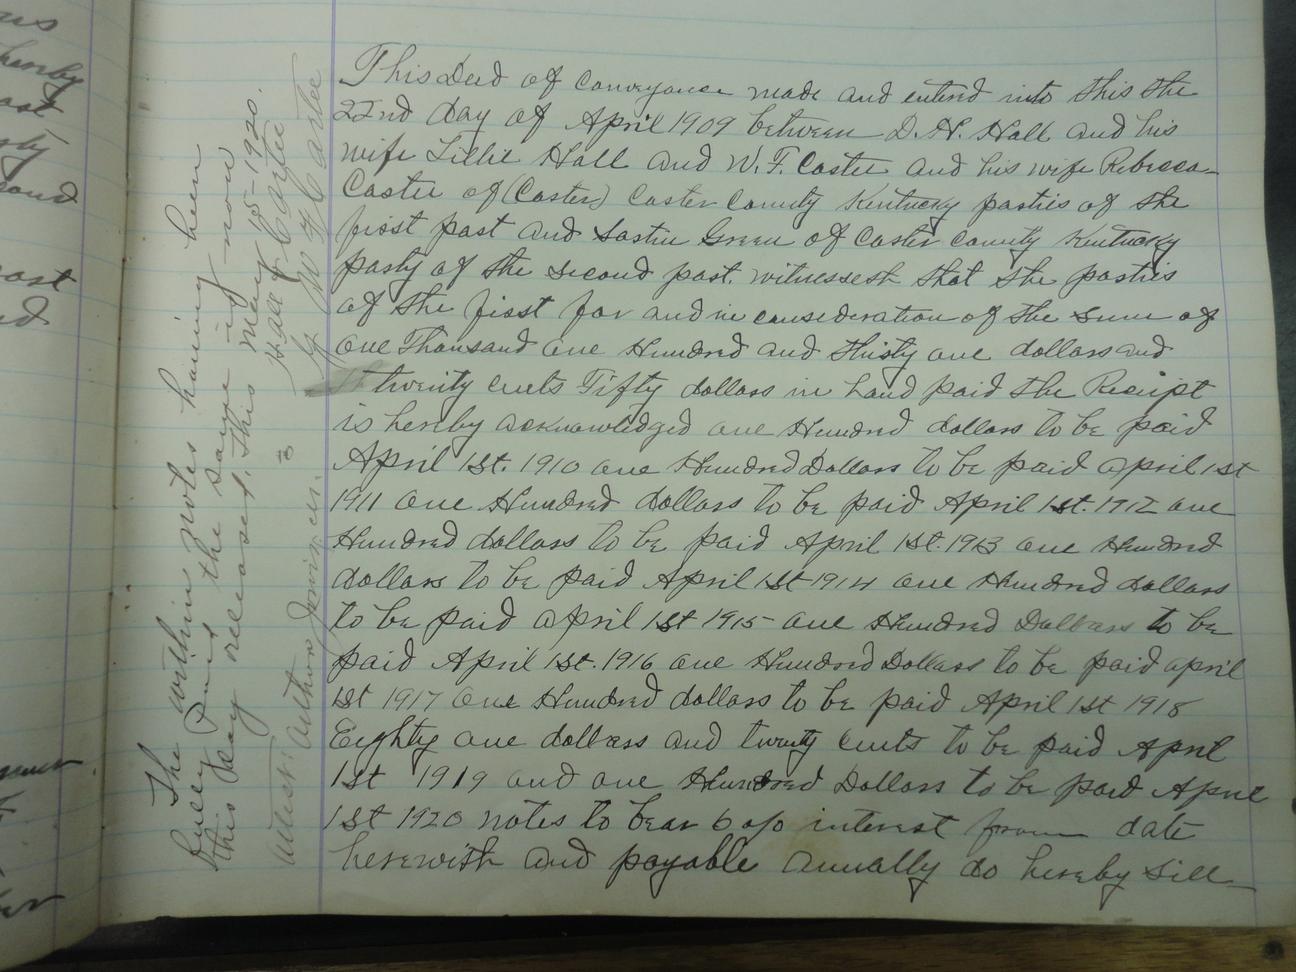 This Deed of conveyance made and entend into this the
22nd day of April 1909 between D. N. Hall and his
wife Lillie Hall and W. F. Carter and his wife Rebecca
Carter of (Carter) Carter County Kentucky parties of the
first part and Green of Carter County Kentucky
party of the second part. witnesseth that the parties
of the first for and in consideration of the sum of
one Thousand one Hundred and thirty one dollars and
twenty cents Fifty dollars in hand paid the Receipt
is hereby acknowledged one Hundred dollars to be paid
April 1st. 1910 one Hundred Dollars to be paid april 1st
1911 one Hundred dollars to be paid April 1st. 1912 one
Hundred dollars to be paid April 1st. 1913 one Hundred
dollars to be paid April 1st 1914 one Hundred dollars
to be paid april 1st 1915 one Hundred Dollars to be
paid April 1st. 1916 one Hundred Dollars to be paid april
1st 1917 one Hundred dollars to be paid April 1st 1918
Eighty one dollars and twenty cents to be paid April
1st 1919 and one Hundred Dollars to be paid April
1st 1920 notes to bear 6 o/o interest from date
herewith and payable anually do hereby sell
The within notes having been
fully paid the same is now
this day released. this May 15-1920.
Hall & Carter
By W. F. Carter
Attest: Arthur